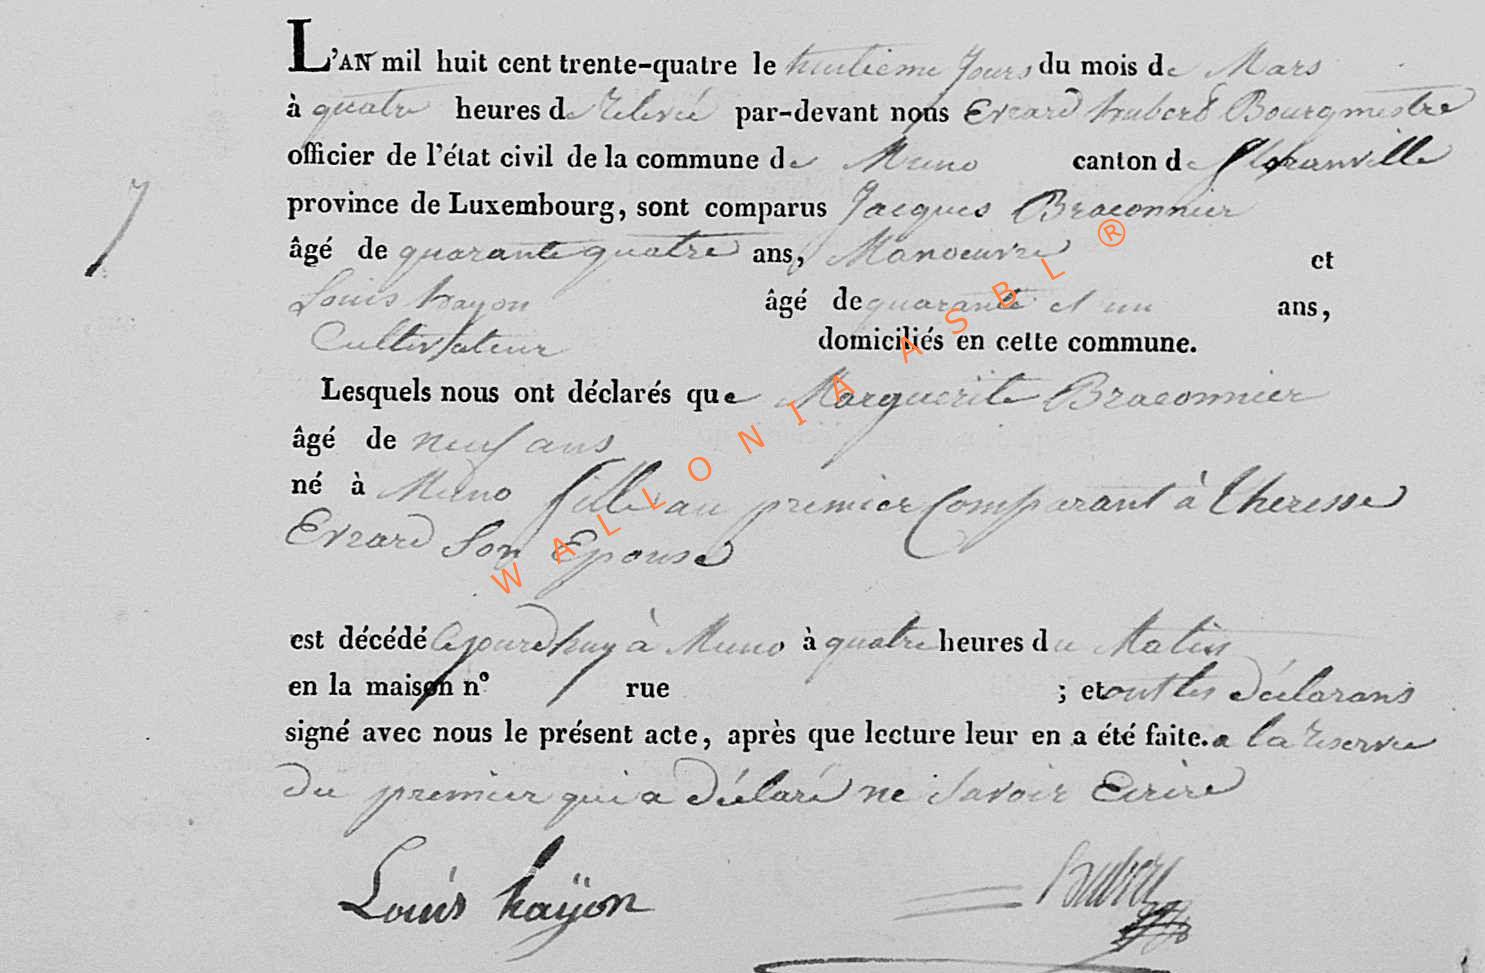 L'AN mil huit cent trente-quatre le huitieme Jours du mois de Mars
à quatre heures de Relevée par-devant nous Evrard hubert Bourgmestre
officier de l'état civil de la commune de Muno canton de Floranville
province de Luxembourg, sont comparus Jacques Braconnier
7
âgé de quarante quatre ans, Manoeuvre et
Louis hayon âgé de quarante et un ans,
Cultivateur domiciliés en cette commune.
Lesquels nous ont déclarés que Marguerite Braconnier
âgé de neuf ans
né à Muno fille au premier Comparant à Theresse
Evrard Son Epouse
est décédé Cejourdhuy à Muno à quatre heures du Matin
en la maison n° rue ; et ont les déclarans
signé avec nous le présent acte, après que lecture leur en a été faite. a la reserve
du premier qui a déclaré ne Savoir Ecrire
Louis hayon hubert
WALLONIA ASBL ®